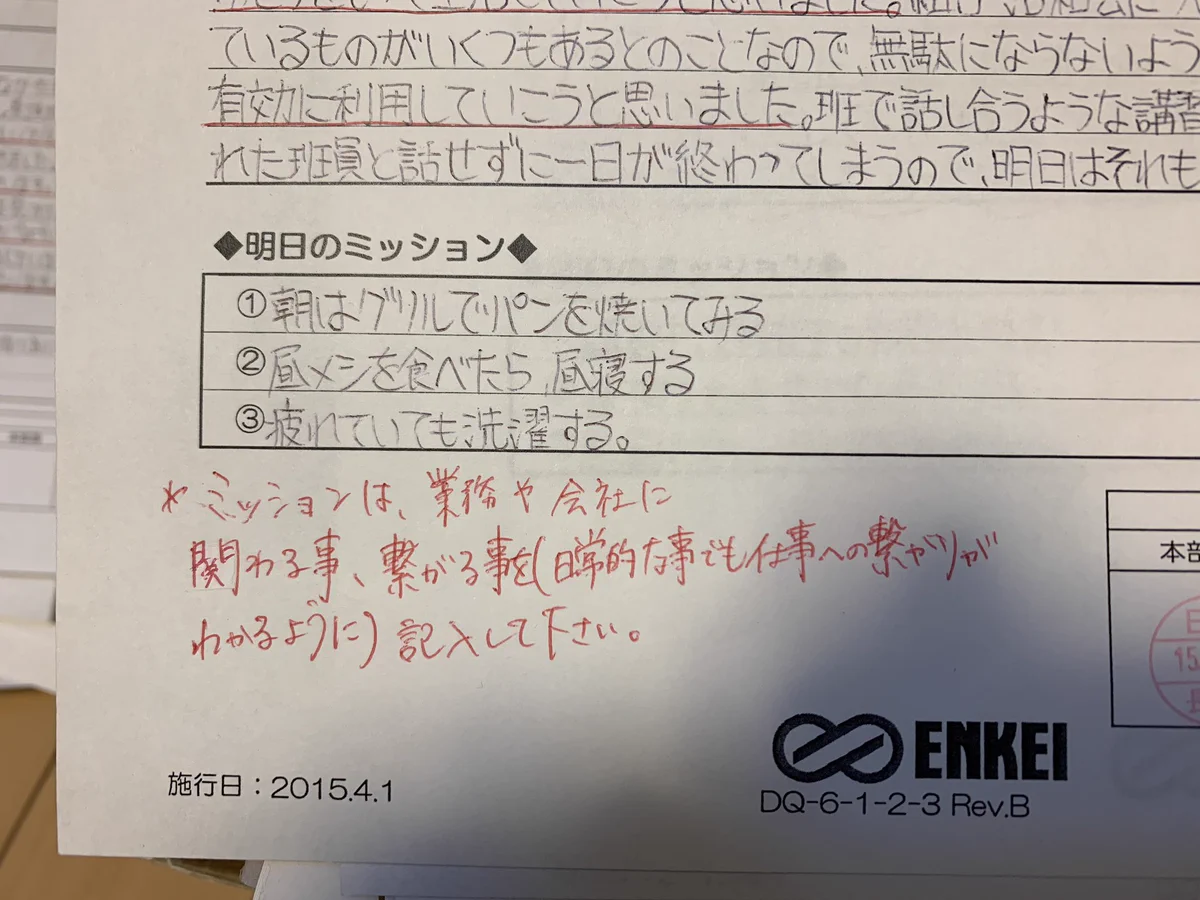 ているものがいくつもあるとのことなので、無駄にならないよう
有効に利用していこうと思いました。班で話し合うような講習
れた班員と話せずに一日が終わってしまうので、明日はそれも
◆明日のミッション◆
①朝はグリルでパンを焼いてみる
②昼メシを食べたら、昼寝する
③疲れていても洗濯する。
*ミッションは、業務や会社に
関わる事、繋がる事を(日常的な事でも仕事への繋がりが
わかるように)記入して下さい。
本部
15.
ENKEI
施行日:2015.4.1
DQ-6-1-2-3 Rev.B